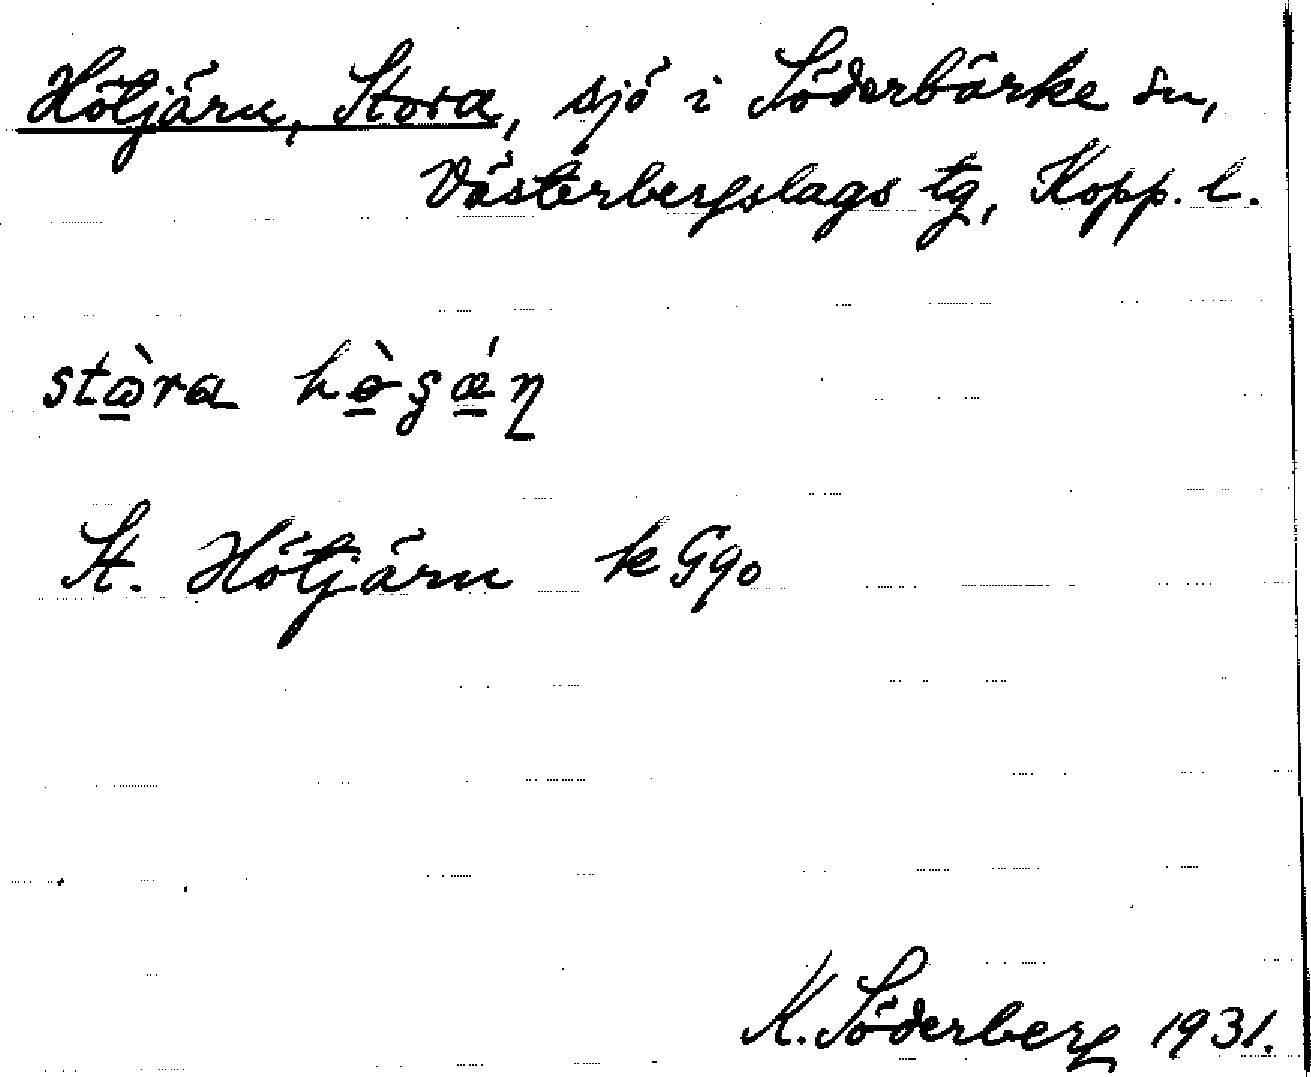 Hötjärn, Stora, sjö i Söderbärke sn,
Västerbergslags tg, Kopp. l.
St. Hötjärn k Ggo
K. Söderberg 1931.